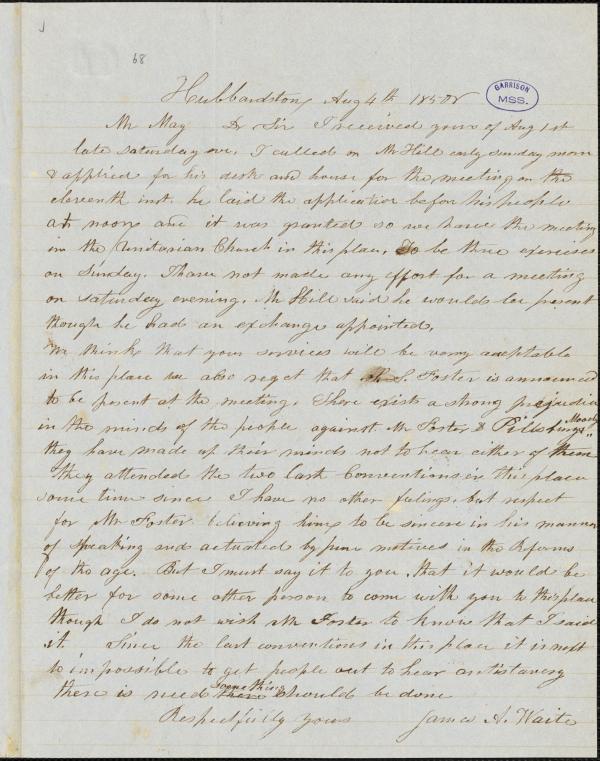 68
GARRISON
MSS.
Hubbardston, Aug 4th 1850
Mr May Dr Sir I received yours of Aug 1st
late saturday eve. I called on Mr Hill early sunday morn
& applied for his desk and house for the meeting on the
eleventh inst. he laid the application before his people
at noon and it was granted so we have the meeting
in the Unitarian Church in this place, to be three exercises
on Sunday. I have not made any effort for a meeting
on saturday evening. Mr Hill said he would be present
though he had an exchange appointed.
We think that your services will be very acceptable
in this place we also regret that S. S. Foster is announced
to be present at the meeting. There exists a strong prejudice
in the minds of the people against Mr Foster & Pillsbury
they have made up their minds not to hear either of them
They attended the two last Conventions in this place
some time since I have no other feelings but respect
for Mr Foster believing him to be sincere in his manner
of speaking and actuated by pure motives in the Reforms
of the age. But I must say it to you, that it would be
better for some other person to come with you to this place
though I do not wish Mr Foster to know that I said
it Since the last conventions in this place it is next
to impossible to get people out to hear antislavery
there is need something should be done
Respectfully yours James A. Waite